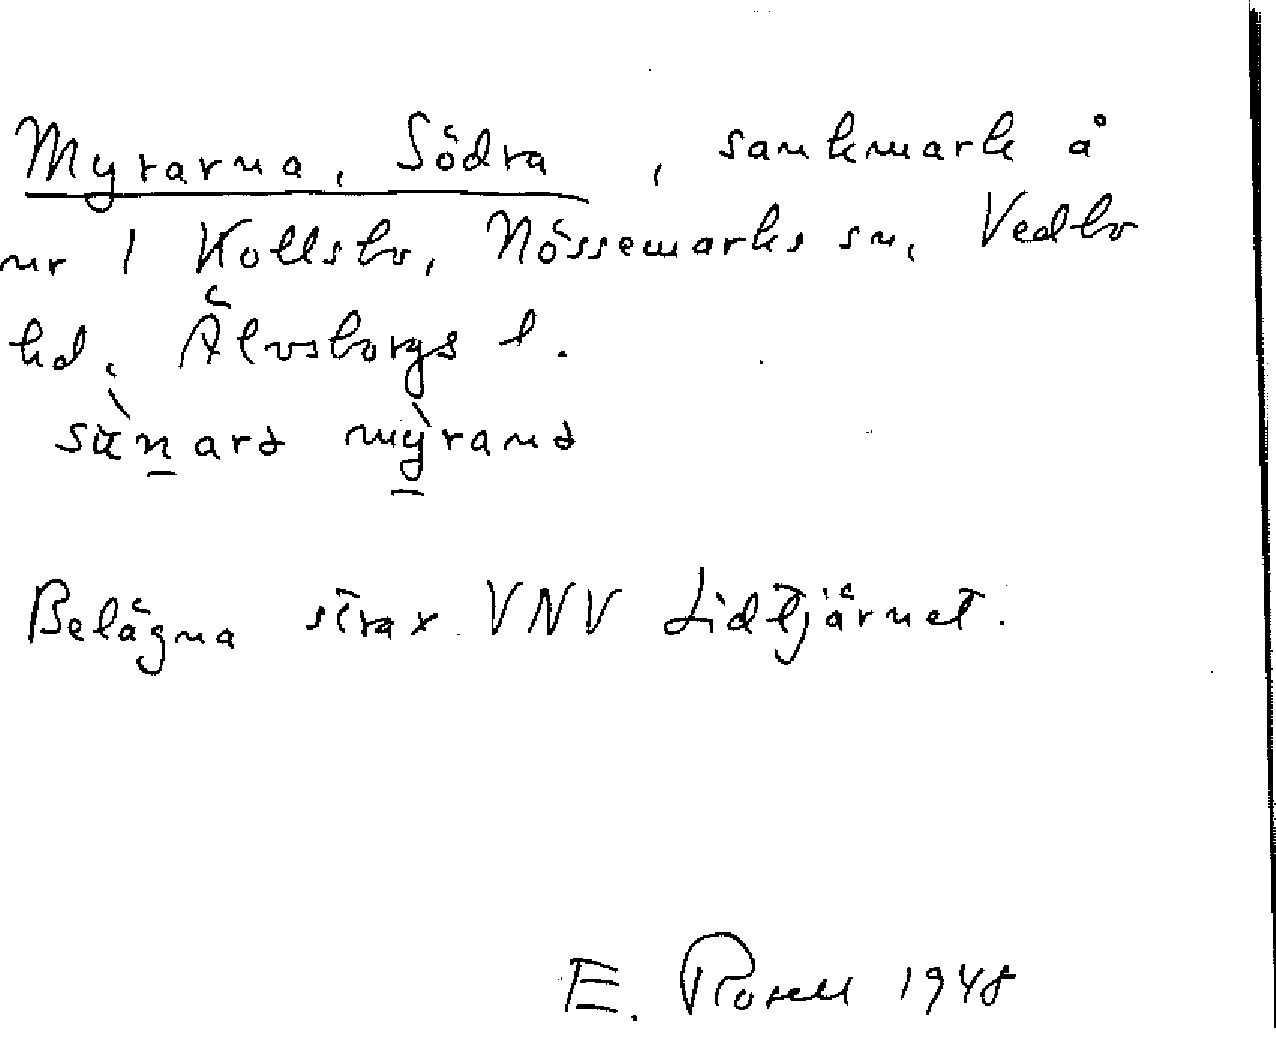 Myrarna, Södra, sankmark å
nr 1 Kollsbo, Nössemarks sn, Vedbo
hd. Älvsborgs l.
myrand
Belägna strax VNV Lidtjärnet.
E. Rosell 1948